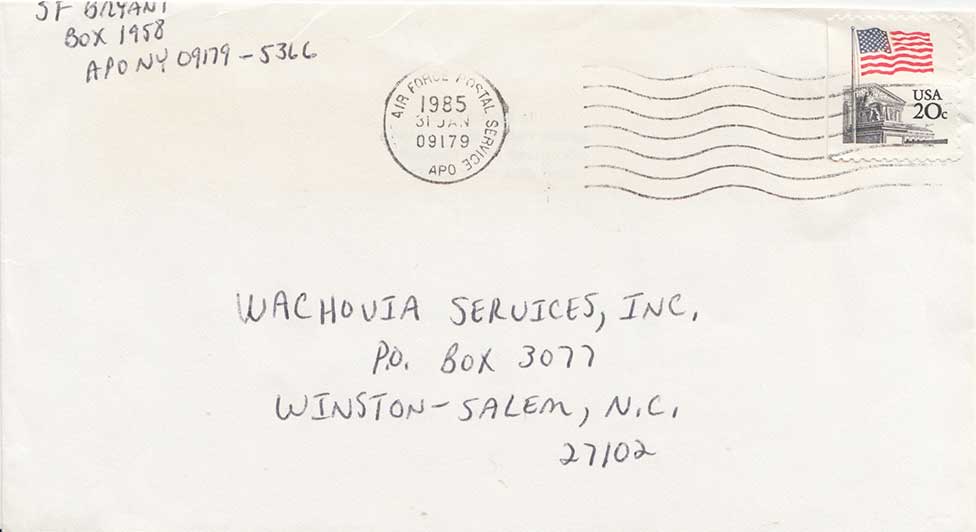 SF BRYANT
BOX 1958
APO NY 09179-5366
AIR FORCE POSTAL SERVICE
1985
31 JAN
09179
APO
USA
20c
WACHOVIA SERVICES, INC.
P.O. BOX 3077
WINSTON-SALEM, N.C.
27102